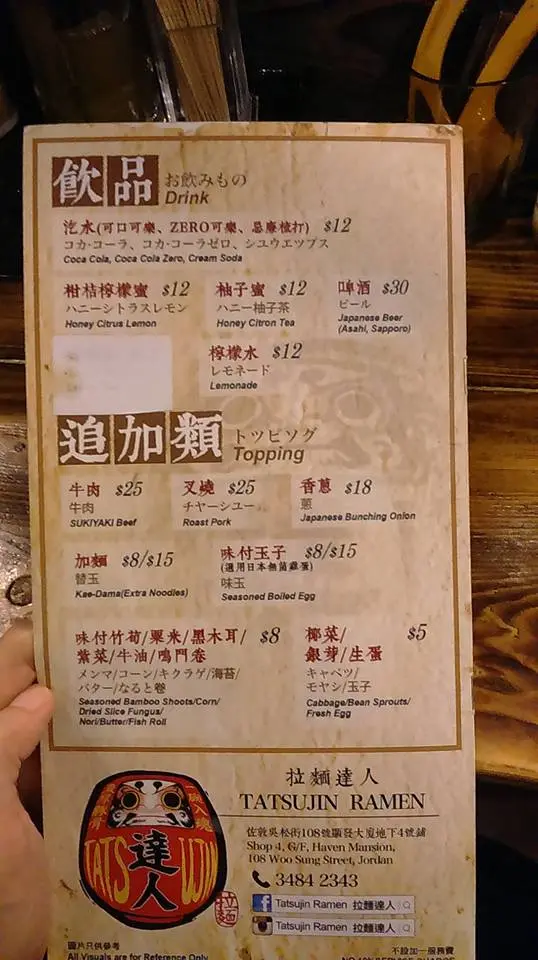 飲品 お飲みもの
Drink
汽水(可口可樂、ZERO可樂、忌廉梳打) $12
コカ·コーラ、コカ·コーラゼロ、シユウエツプス
Coca Cola, Coca Cola Zero, Cream Soda
柑桔檸檬蜜 $12
ハニーシトラスレモン
Honey Citrus Lemon
柚子蜜 $12
ハニー柚子茶
Honey Citron Tea
啤酒 $30
ビール
Japanese Beer
(Asahi, Sapporo)
檸檬水 $12
レモネード
Lemonade
追加類 トツピソグ
Topping
牛肉 $25
牛肉
SUKIYAKI Beef
叉燒 $25
チヤーシユー
Roast Pork
香蔥 $18
蔥
Japanese Bunching Onion
加麵 $8/$15
替玉
Kae-Dama(Extra Noodles)
味付玉子 $8/$15
(選用日本無菌雞蛋)
味玉
Seasoned Boiled Egg
味付竹荀/粟米/黑木耳/ $8
紫菜/牛油/鳴門卷
メンマ/コーン/キクラゲ/海苔/
バター/なると卷
Seasoned Bamboo Shoots/Corn/
Dried Slice Fungus/
Nori/Butter/Fish Roll
椰菜/ $5
銀芽/生蛋
キャベツ/
モヤシ/玉子
Cabbage/Bean Sprouts/
Fresh Egg
TATSUJIN
達人
拉麵
拉麵達人
TATSUJIN RAMEN
佐敦吳松街108號顯發大廈地下4號鋪
Shop 4, G/F, Haven Mansion,
108 Woo Sung Street, Jordan
3484 2343
Tatsujin Ramen 拉麵達人
Tatsujin Ramen 拉麵達人
圖片只供參考
All Visuals are for Reference Only
不設加一服務費
NO 10% SERVICE CHARGE